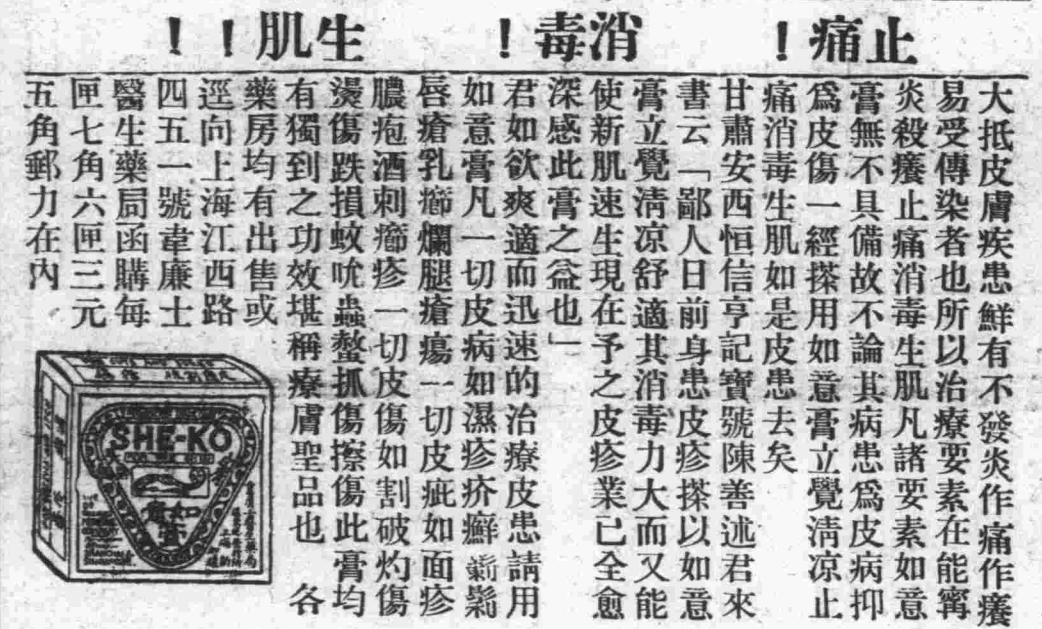 止痛！　消毒！　生肌！！
大抵皮膚疾患鮮有不發炎作痛作癢
易受傳染者也所以治療要素在能寗
炎殺癢止痛消毒生肌凡諸要素如意
膏無不具備故不論其病患爲皮病抑
爲皮傷一經搽用如意膏立覺淸凉止
痛消毒生肌如是皮患去矣
甘肅安西恒信亨記寶號陳善述君來
書云「鄙人日前身患皮疹搽以如意
膏立覺淸凉舒適其消毒力大而又能
使新肌速生現在予之皮疹業已全愈
深感此膏之益也」
君如欲爽適而迅速的治療皮患請用
如意膏凡一切皮病如濕疹疥癬
唇瘡乳癤爛腿瘡瘍一切皮疵如面疹
膿疱酒刺癤疹一切皮傷如割破灼傷
燙傷跌損蚊吮蟲螫抓傷擦傷此膏均
有獨到之功效堪稱療膚聖品也　各
藥房均有出售或
逕向上海江西路
四五一號韋廉士
醫生藥局函購每
匣七角六匣三元
五角郵力在內
SHE-KO
如意膏